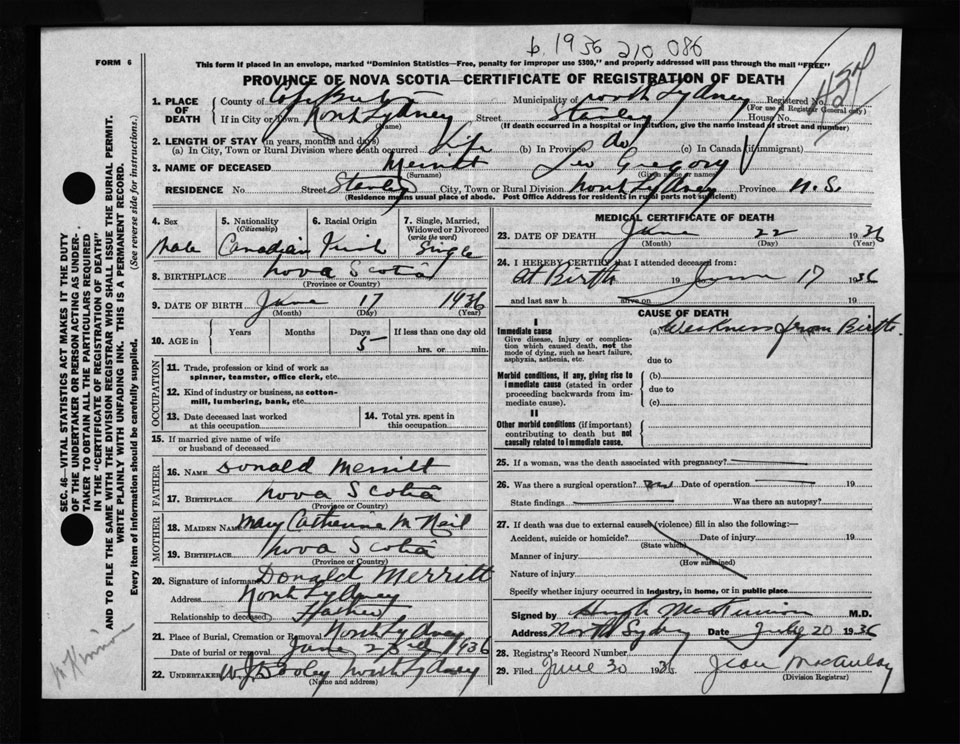 b. 1936 210 086
FORM 6
This form if placed in an envelope, marked "Dominion Statistics—Free, penalty for improper use $300," and properly addressed will pass through the mail "FREE"
PROVINCE OF NOVA SCOTIA—CERTIFICATE OF REGISTRATION OF DEATH
1. PLACE OF DEATH County of Cape Breton Municipality of North Sydney Registered No.
(For use of Registrar General only)
If in City or Town North Sydney Street Stanley House No.
(Name) (If death occurred in a hospital or institution, give the name instead of street and number)
2. LENGTH OF STAY (in years, months and days)
(a) In City, Town or Rural Division where death occurred Life (b) In Province do (c) In Canada (if immigrant)
3. NAME OF DECEASED Merritt Leo Gregory
(Surname) (Given name or names)
RESIDENCE No. Street Stanley City, Town or Rural Division North Sydney Province N.S.
(Residence means usual place of abode. Post Office Address for residents in rural parts not sufficient)
4. Sex Male
5. Nationality (Citizenship) Canadian
6. Racial Origin
7. Single, Married, Widowed or Divorced (write the word) Single
8. BIRTHPLACE Nova Scotia
(Province or Country)
9. DATE OF BIRTH June 17 1936
(Month) (Day) (Year)
10. AGE in Years Months Days 5 If less than one day old
hrs. or min.
OCCUPATION
11. Trade, profession or kind of work as
spinner, teamster, office clerk, etc.
12. Kind of industry or business, as cotton-
mill, lumbering, bank, etc.
13. Date deceased last worked
at this occupation
14. Total yrs. spent in
this occupation
15. If married give name of wife
or husband of deceased
FATHER
16. NAME Donald Merritt
17. BIRTHPLACE Nova Scotia
(Province or Country)
MOTHER
18. MAIDEN NAME Mary Catherine McNeil
19. BIRTHPLACE Nova Scotia
(Province or Country)
20. Signature of informant Donald Merritt
Address North Sydney
Relationship to deceased Father
21. Place of Burial, Cremation or Removal North Sydney
Date of burial or removal June 23rd 1936
22. UNDERTAKER W. J. Dooley North Sydney
(Name and address)
MEDICAL CERTIFICATE OF DEATH
23. DATE OF DEATH June 22 1936
(Month) (Day) (Year)
24. I HEREBY CERTIFY that I attended deceased from:
At Birth 19 June 17 1936
and last saw h alive on 19
CAUSE OF DEATH
I
Immediate cause (a) Weakness from Birth.
Give disease, injury or complica-
tion which caused death, not the
mode of dying, such as heart failure,
asphyxia, asthenia, etc. due to
Morbid conditions, if any, giving rise to (b)
immediate cause (stated in order due to
proceeding backwards from im-
mediate cause). (c)
II
Other morbid conditions (if important)
contributing to death but not
causally related to immediate cause.
25. If a woman, was the death associated with pregnancy?
26. Was there a surgical operation? Date of operation 19
State findings Was there an autopsy?
27. If death was due to external causes (violence) fill in also the following:—
Accident, suicide or homicide? Date of injury 19
(State which)
Manner of injury
(How sustained)
Nature of injury
Specify whether injury occurred in industry, in home, or in public place
Signed by Hugh M.D.
Address North Sydney Date July 20 1936
28. Registrar's Record Number
29. Filed June 30 1936 Jean MacAulay
(Division Registrar)
SEC. 46—VITAL STATISTICS ACT MAKES IT THE DUTY
OF THE UNDERTAKER OR PERSON ACTING AS UNDER-
TAKER TO OBTAIN ALL THE PARTICULARS REQUIRED
IN THE "CERTIFICATE OF REGISTRATION OF DEATH"
AND TO FILE THE SAME WITH THE DIVISION REGISTRAR WHO SHALL ISSUE THE BURIAL PERMIT.
WRITE PLAINLY WITH UNFADING INK. THIS IS A PERMANENT RECORD.
Every item of information should be carefully supplied. (See reverse side for instructions.)